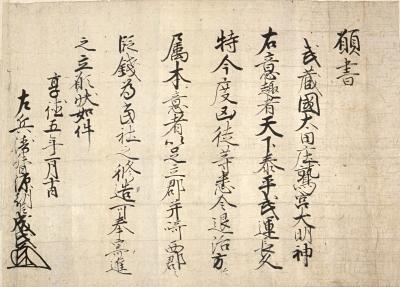 願書
武蔵國太田庄鷲宮大明神
右意趣者天下泰平武運長久
特今度凶徒等悉令退治方々
属本意者以足立郡并埼西郡
段錢為當社之修造可奉寄進
之立願状如件
享徳五年二月十日
左兵衛督源朝臣成氏